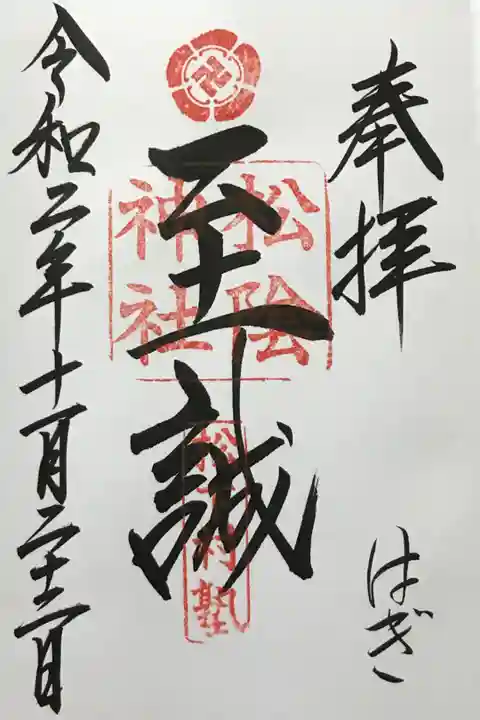 奉拝
はぎ
松陰
神社
至誠
松下村塾
令和二年十一月二十三日